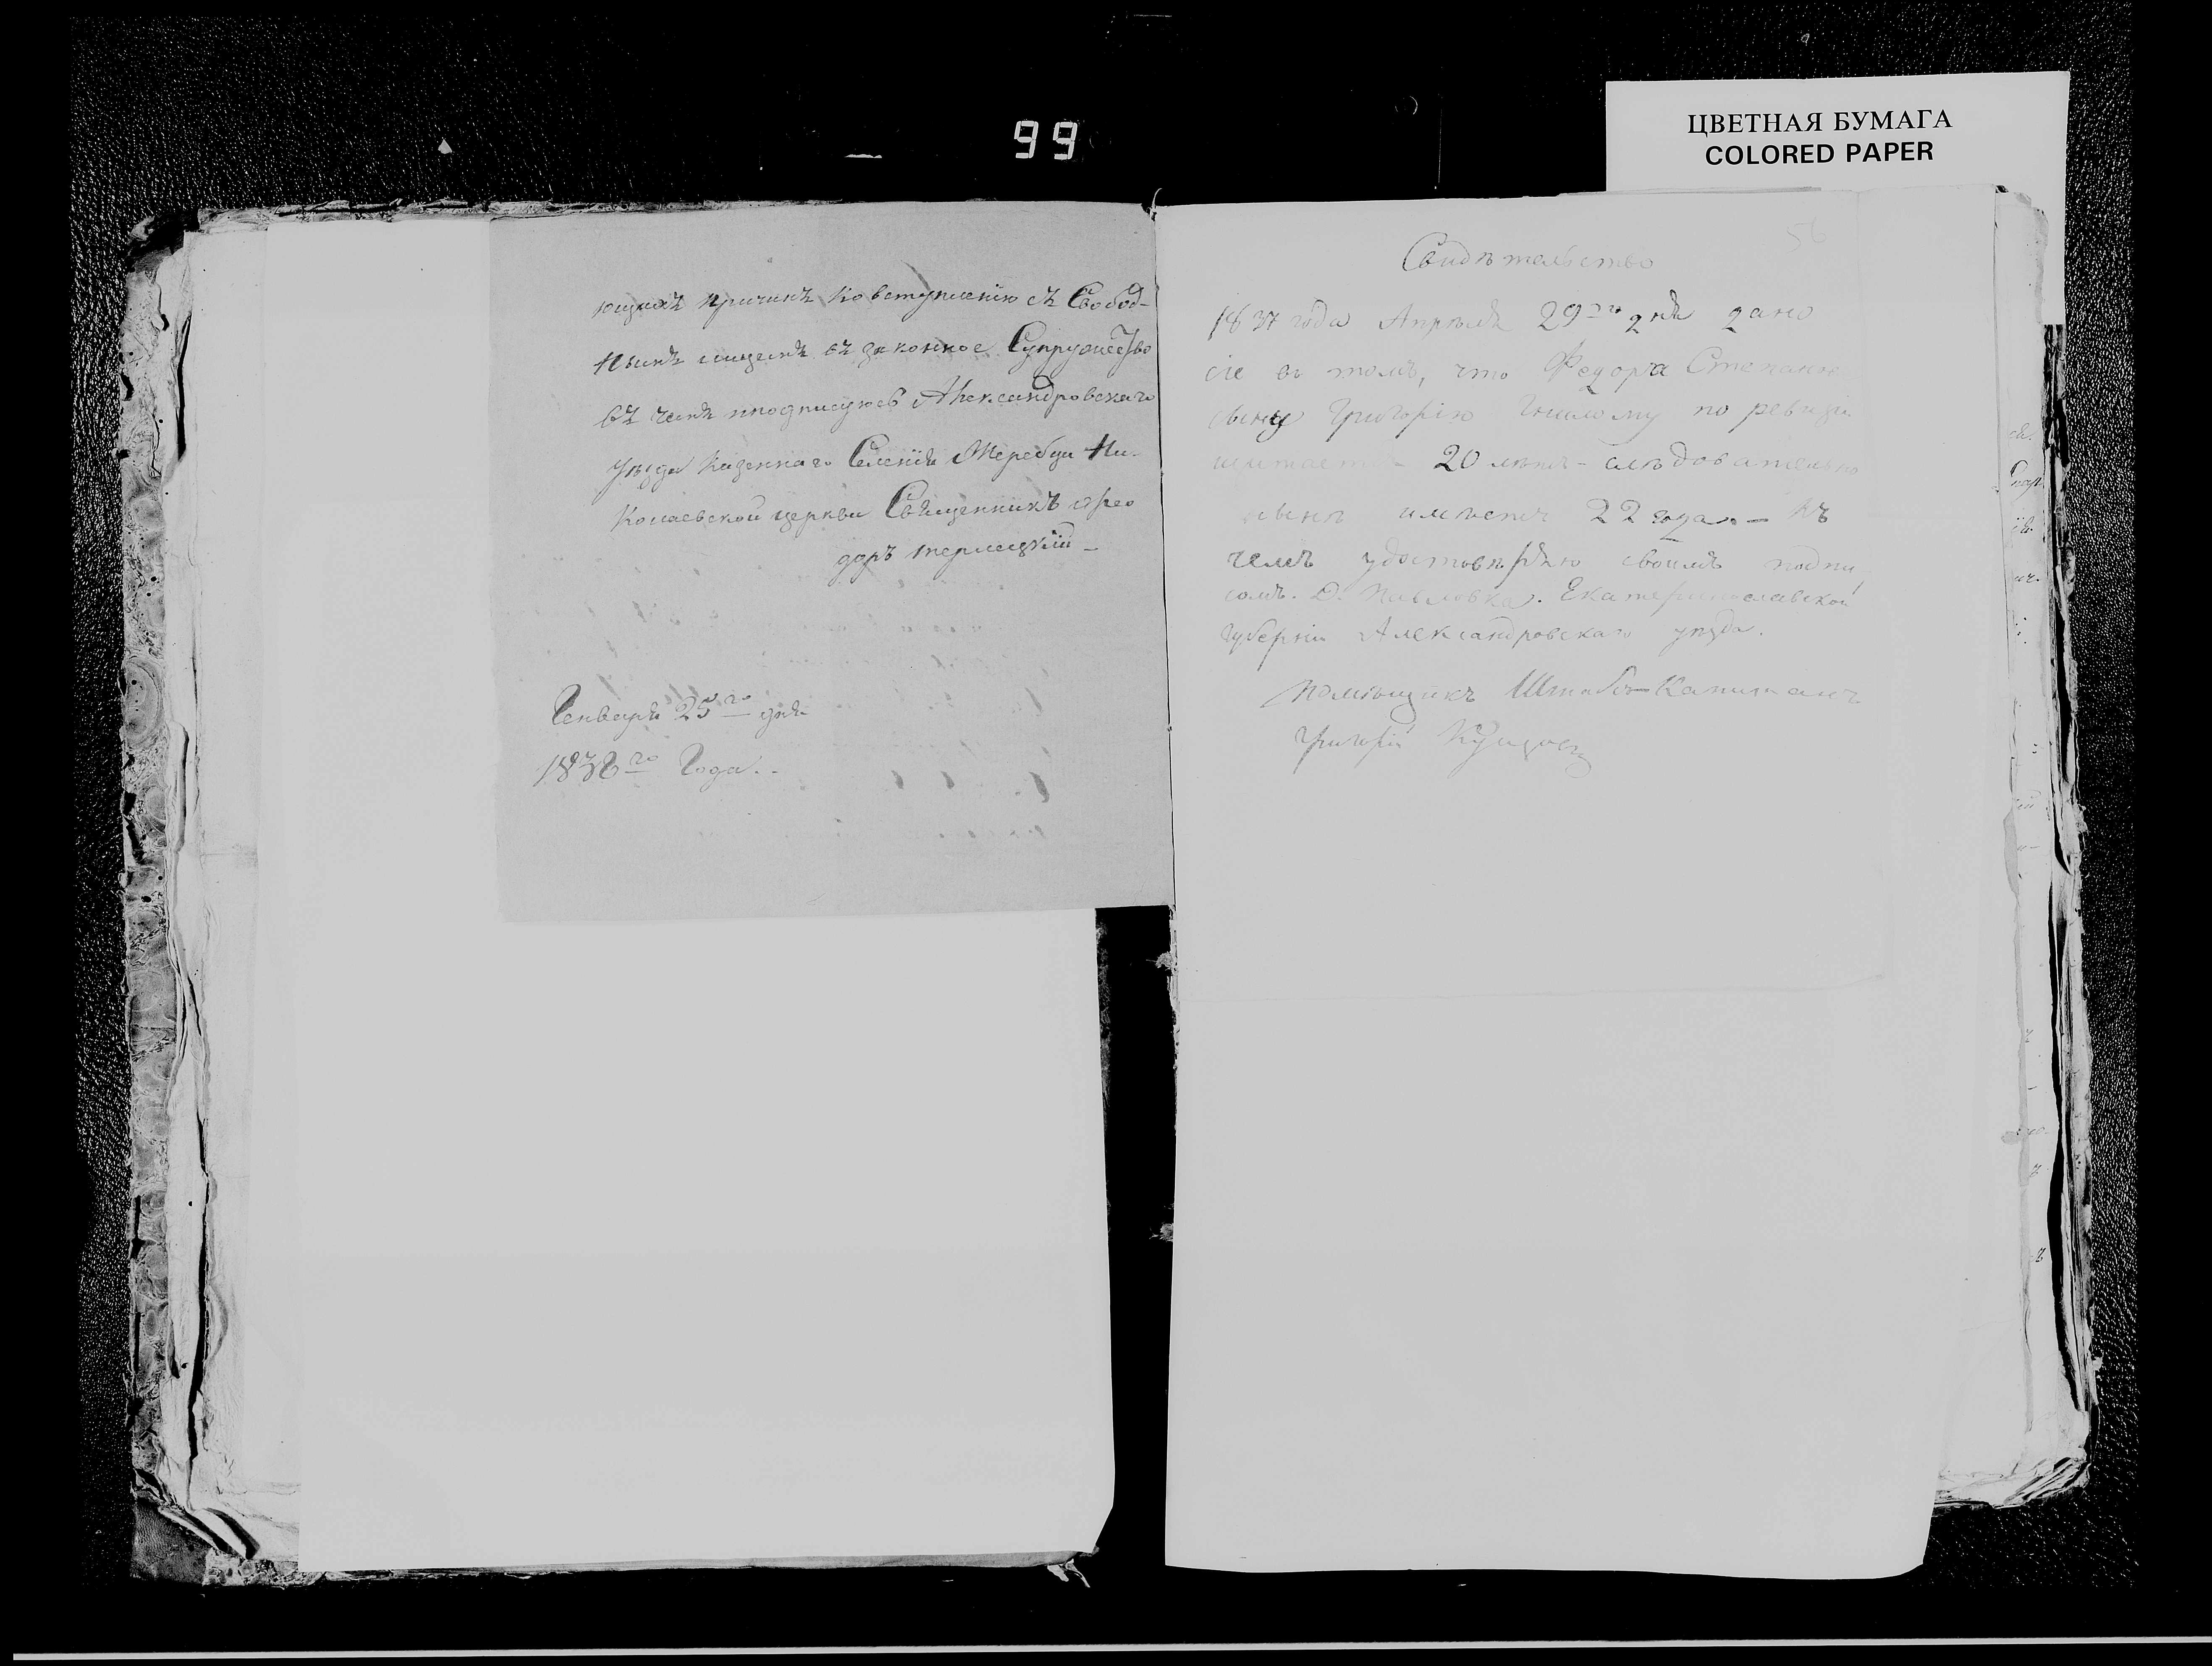 99
ЦВЕТНАЯ БУМАГА
COLORED PAPER
ющихъ причинъ ко вступленію съ Свобод-
нымъ лицемъ въ законное Супружество
въ чемъ и подписуюсь Александровскаго
Уѣзда Казеннаго Селенія Жеребця Ни-
колаевской церкви Священникъ Фео
доръ
Генваря 25го дня
1838го Года..
56
Свидѣтельство
1837 года Апрѣля 29го дня дано
сіе въ томъ, что Федора Степан
сыну Григорію Гнилому по ревизіи
щитается 20 лѣтъ - слѣдовательно
нынѣ имѣетъ 22 года. - Въ
чемъ удостовѣряю своимъ подпи
сомъ. Д. Павловка. Екатеринославской
Губерніи Александровскаго уѣзда.
Помѣщикъ Штабсъ-Капитанъ
Григорій